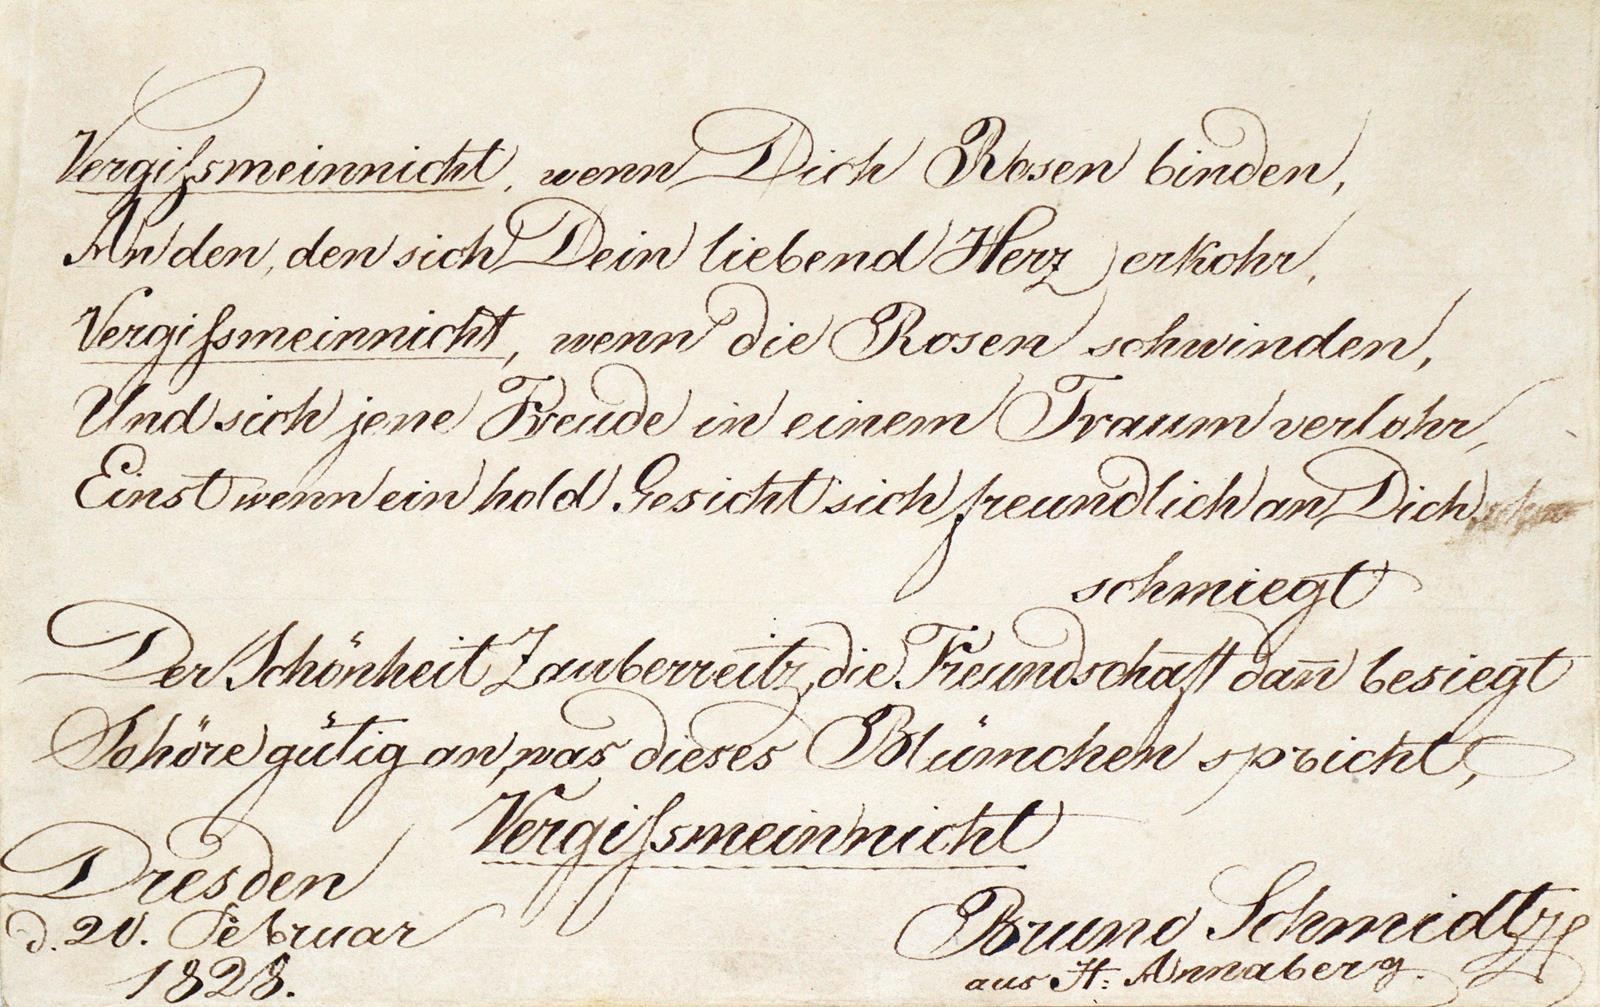 Vergißsmeinnicht, wenn Dich Rosen binden,
An den, den sich Dein liebend Herz erkohr,
Vergißsmeinnicht, wenn die Rosen schwinden,
Und sich jene Freude in einem Traum verlohr,
Einst wenn ein hold Gesicht sich freundlich an Dich
schmiegt
Der Schönheit Zauberreitz, die Freundschaft dan̄ besiegt
Schöre gütig an, was dieses Blümchen spricht,
Vergißsmeinnicht
Dresden
d. 20. Februar
1828.
Bruno Schmidtz
aus St: Annaberg.